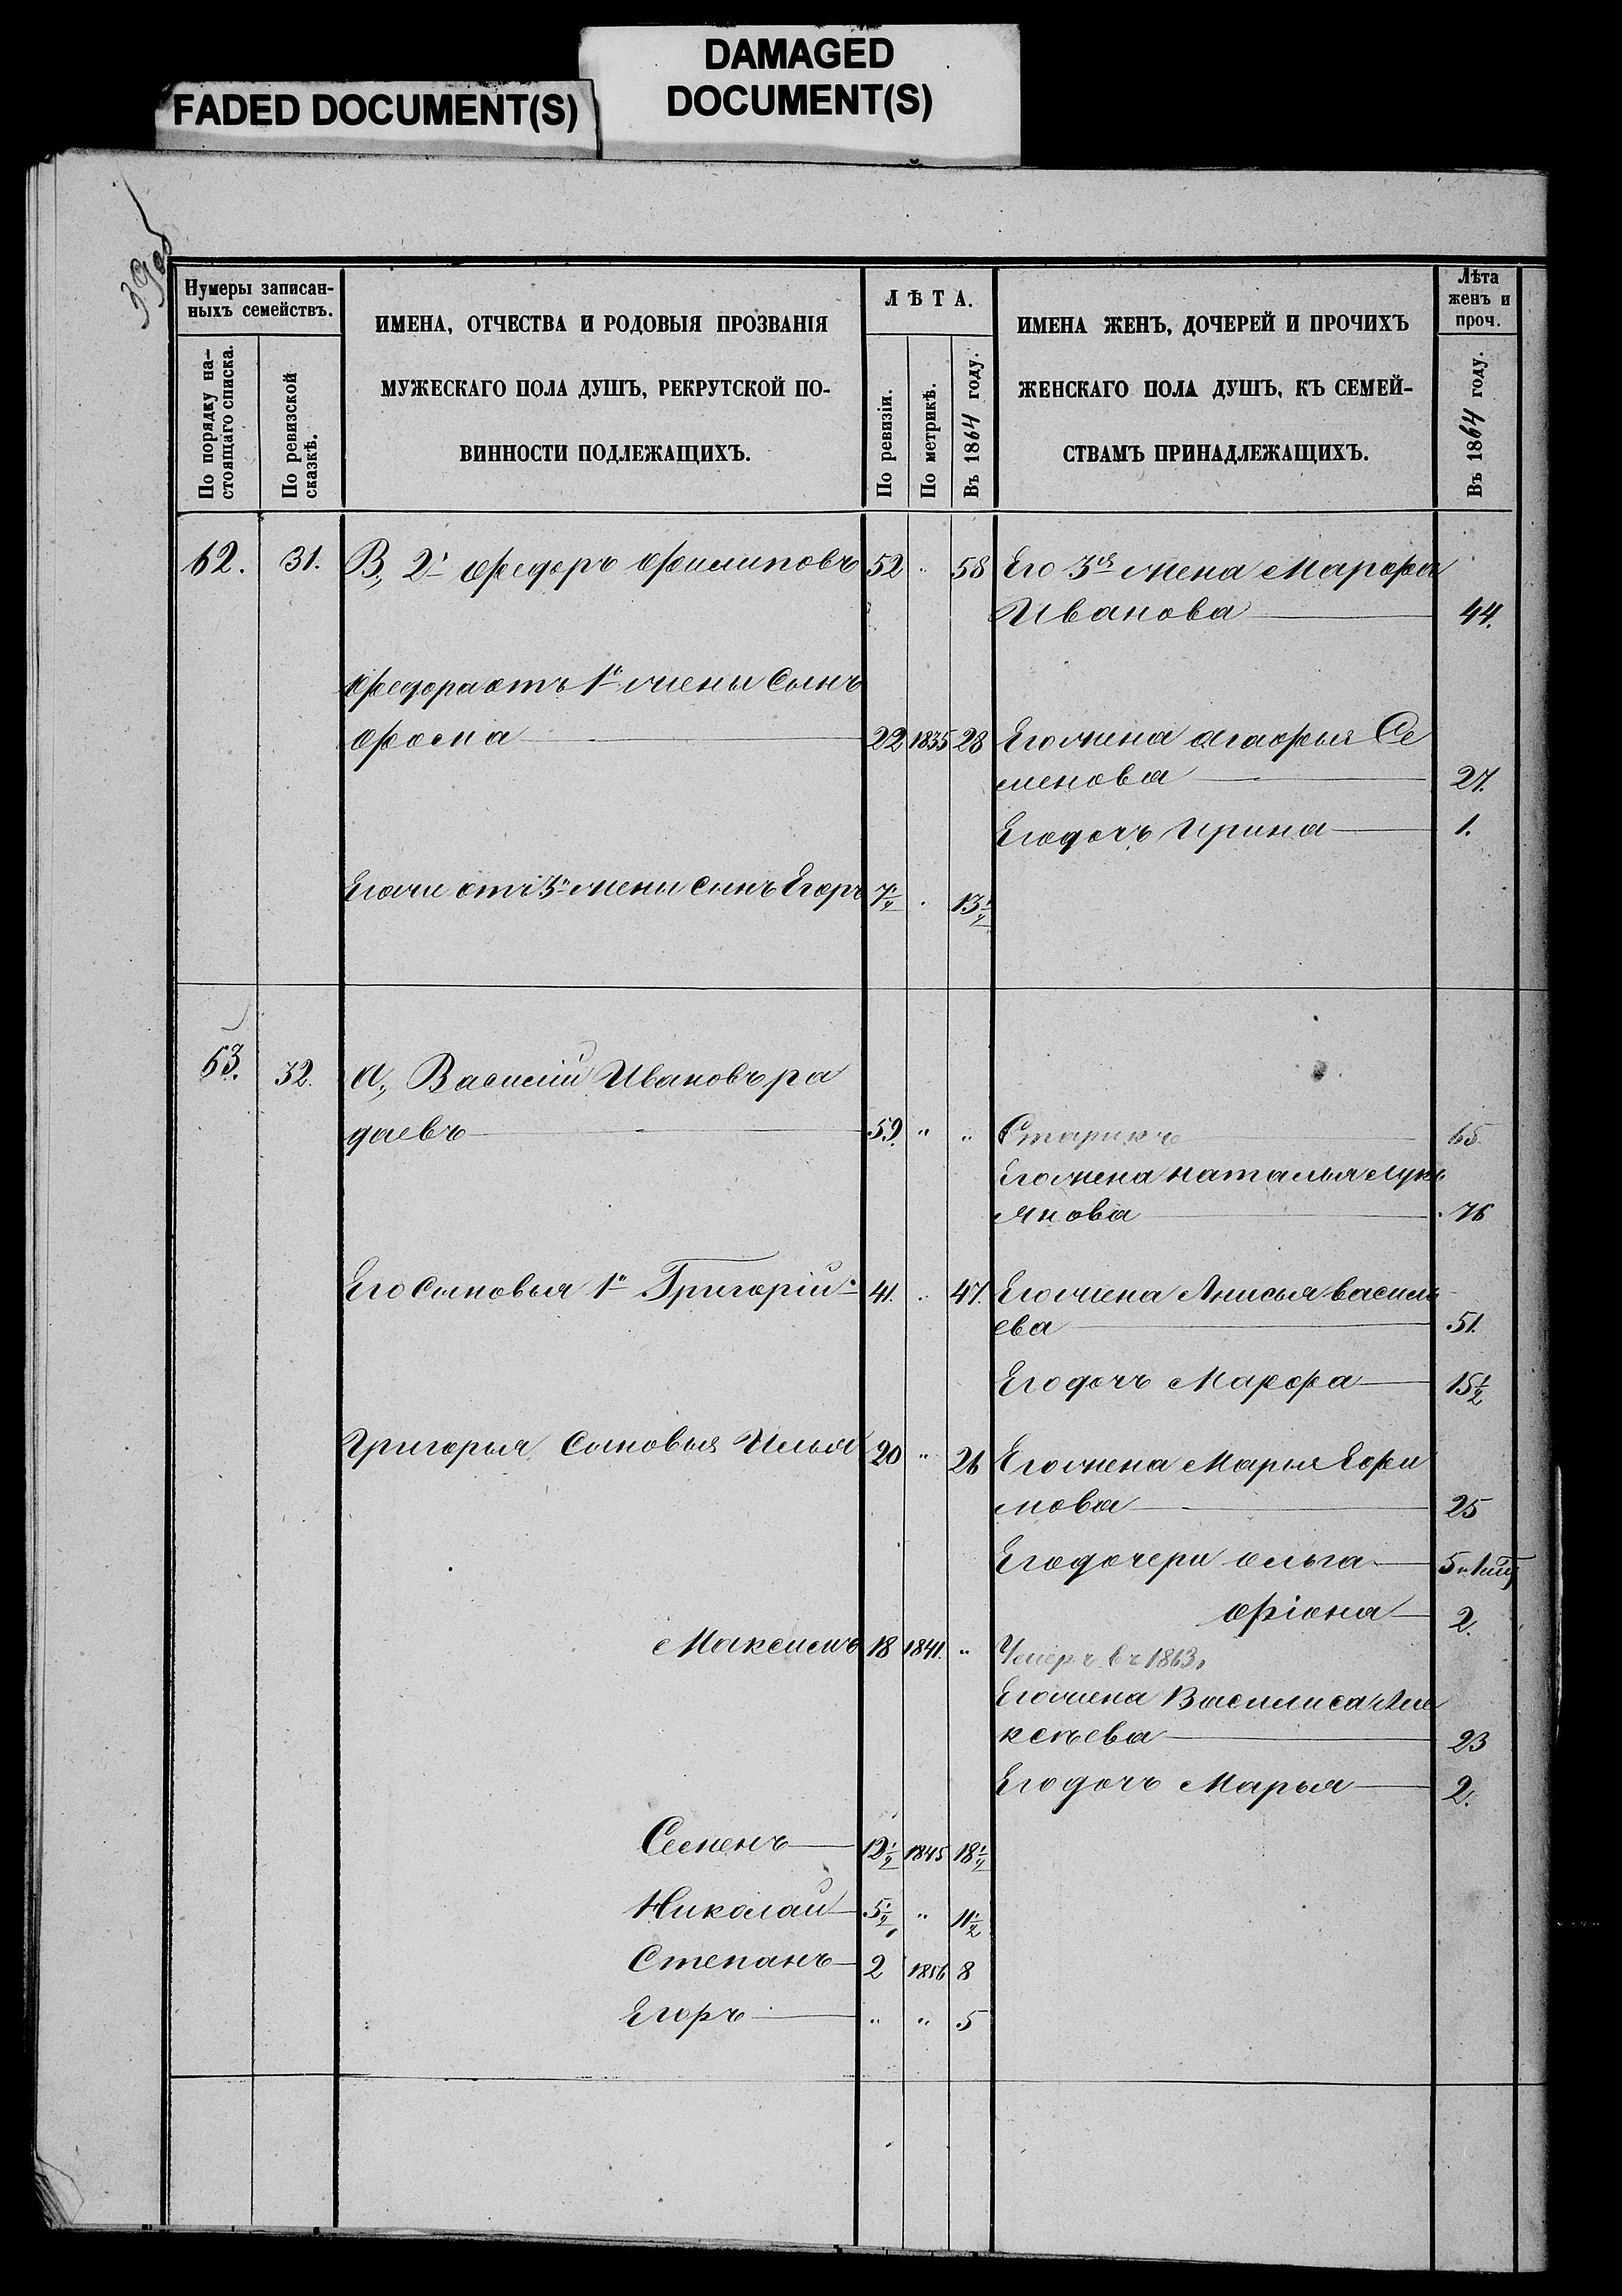 DAMAGED
DOCUMENT(S)
FADED DOCUMENT(S)
Нумеры записан-
ныхъ семействъ.
По порядку на-
стоящаго списка.
По ревизской
сказкѣ.
ИМЕНА, ОТЧЕСТВА И РОДОВЫЯ ПРОЗВАНІЯ
МУЖЕСКАГО ПОЛА ДУШЪ, РЕКРУТСКОЙ ПО-
ВИННОСТИ ПОДЛЕЖАЩИХЪ.
ЛѢТА.
По ревизіи.
По метрикѣ.
Въ 1864 году.
ИМЕНА ЖЕНЪ, ДОЧЕРЕЙ И ПРОЧИХЪ
ЖЕНСКАГО ПОЛА ДУШЪ, КЪ СЕМЕЙ-
СТВАМЪ ПРИНАДЛЕЖАЩИХЪ.
Лѣта
женъ и
проч.
Въ 1864 году.
62. 31. В, 2й Федоръ Филиповъ 52 " 58 Его 3я жена Марфа
Иванова 44.
Федора отъ 1й жены сынъ
Фома 22 1835 28 Его жена Агафья Се
менова 27.
Его дочь Ирина 1.
Его же отъ 3й жены сынъ Егоръ 7½ " 13½
63. 32. а, Василій Ивановъ ра
даевъ 59. " " Старикъ 65
Его жена Наталья Лукь
янова 76
Его сыновья 1й Григорій 41. " 47. Его жена Анисья василь
ева 51.
Его дочь Марфа 15½
Григорья сыновья Илья 20 " 26 Его жена Марья Ефи
мова 25
Его дочери Ольга
Фіона 2.
Максимъ 18 1841. " Умеръ въ 1863,
Его жена Василиса Але
ксѣева 23
Его дочь Марья 2.
Семенъ 12½ 1845 18½
Николай 5½ " 11½
Степанъ 2 1856 8
Егоръ " " 5